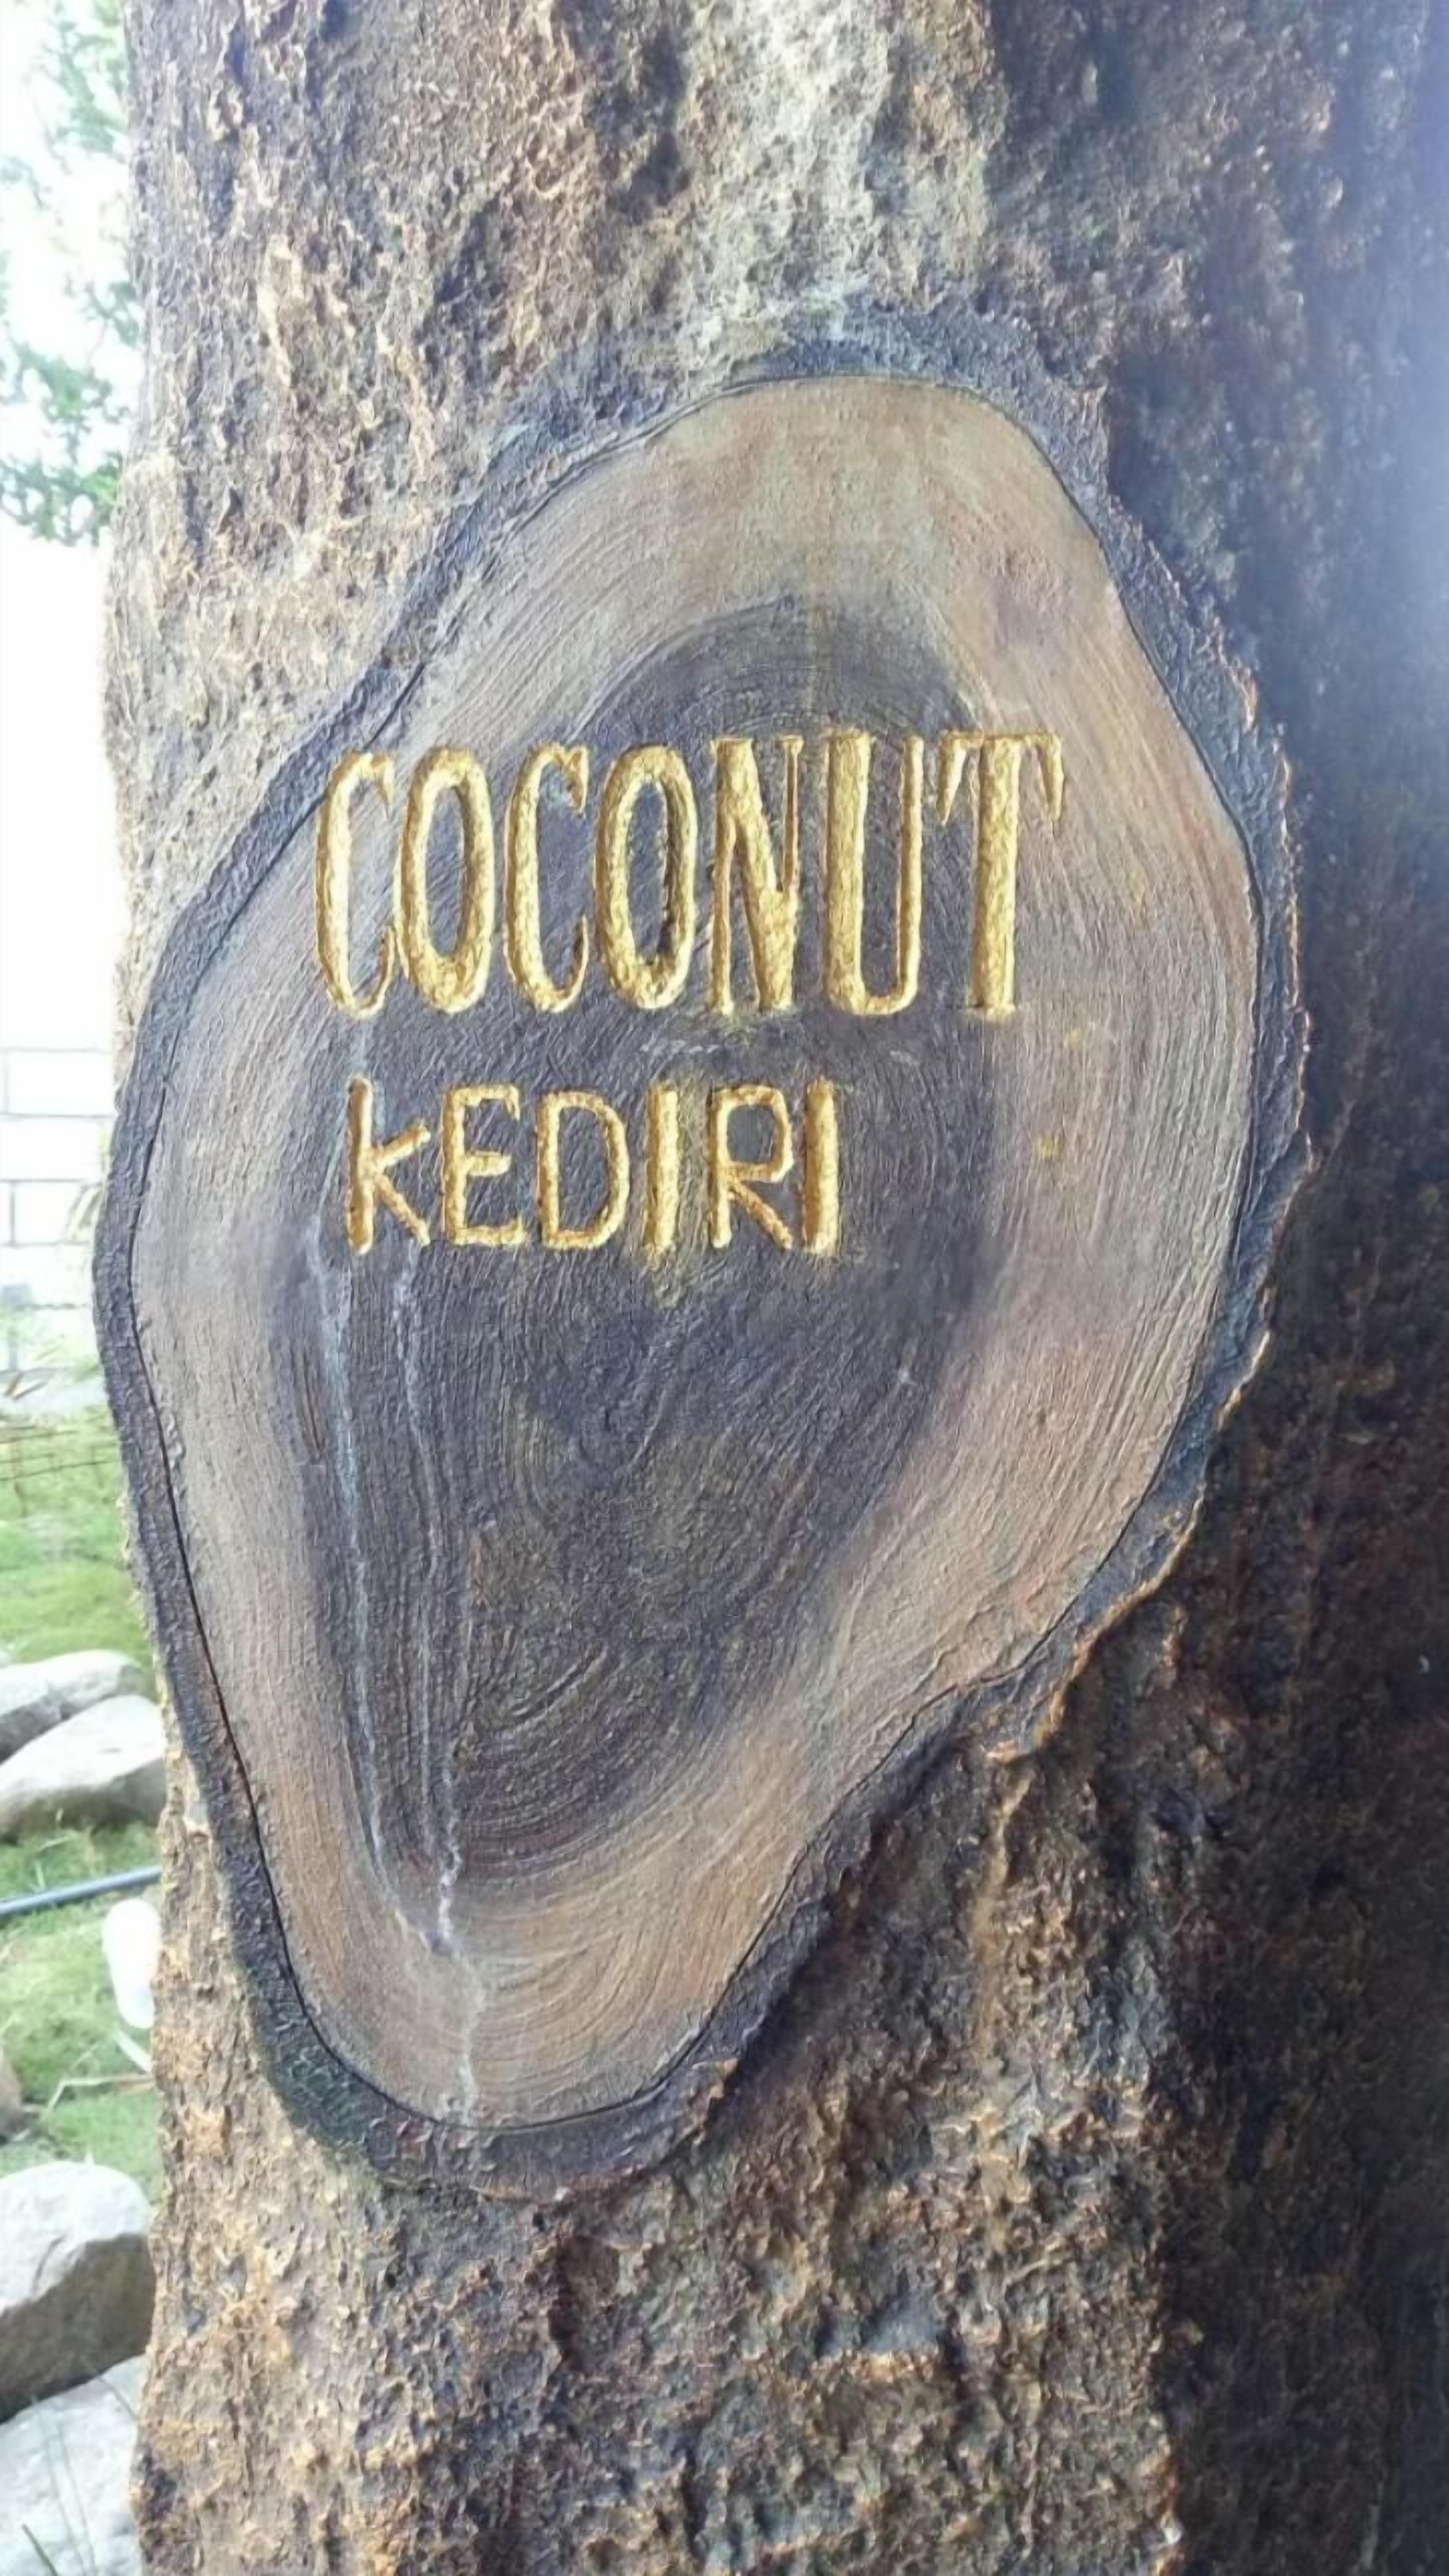 COCONUT
KEDIRI